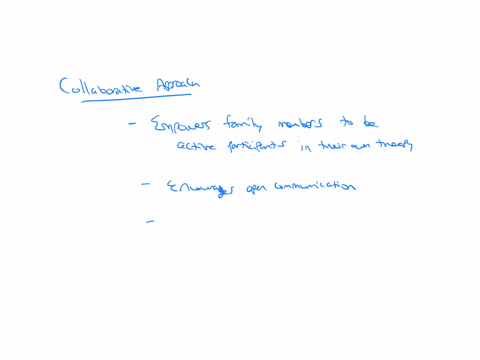 Collaborative Approach
- Empowers family members to be
active participants in their own therapy
- Encourages open communication
-